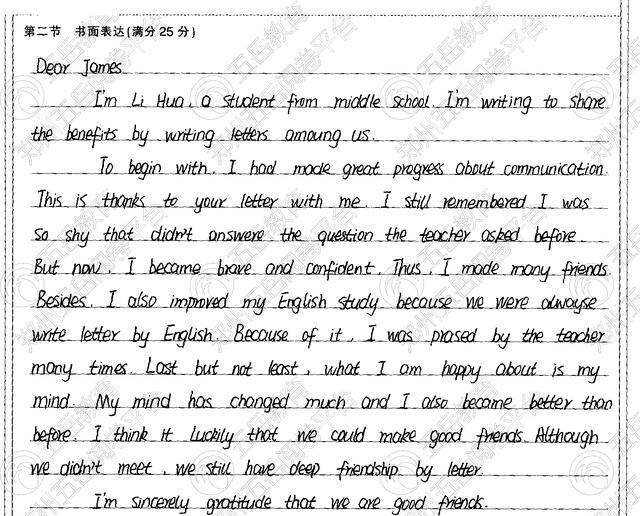 第二节 书面表达(满分25分)
Dear James
I'm Li Hua, a student from middle school. I'm writing to share
the benefits by writing letters amoung us.
To begin with, I had made great progress about communication.
This is thanks to your letter with me. I still remembered I was
so shy that didn't answere the question the teacher asked before.
But now, I became brave and confident, Thus, I made many friends.
Besides, I also improved my English study because we were alwayse
write letter by English. Because of it, I was prased by the teacher
many times. Last but not least, what I am happy about is my
mind. My mind has changed much and I also become better than
before. I think it luckily that we could make good friends. Although
we didn't meet, we still have deep friendship by letter.
I'm sincerely gratitude that we are good friends.